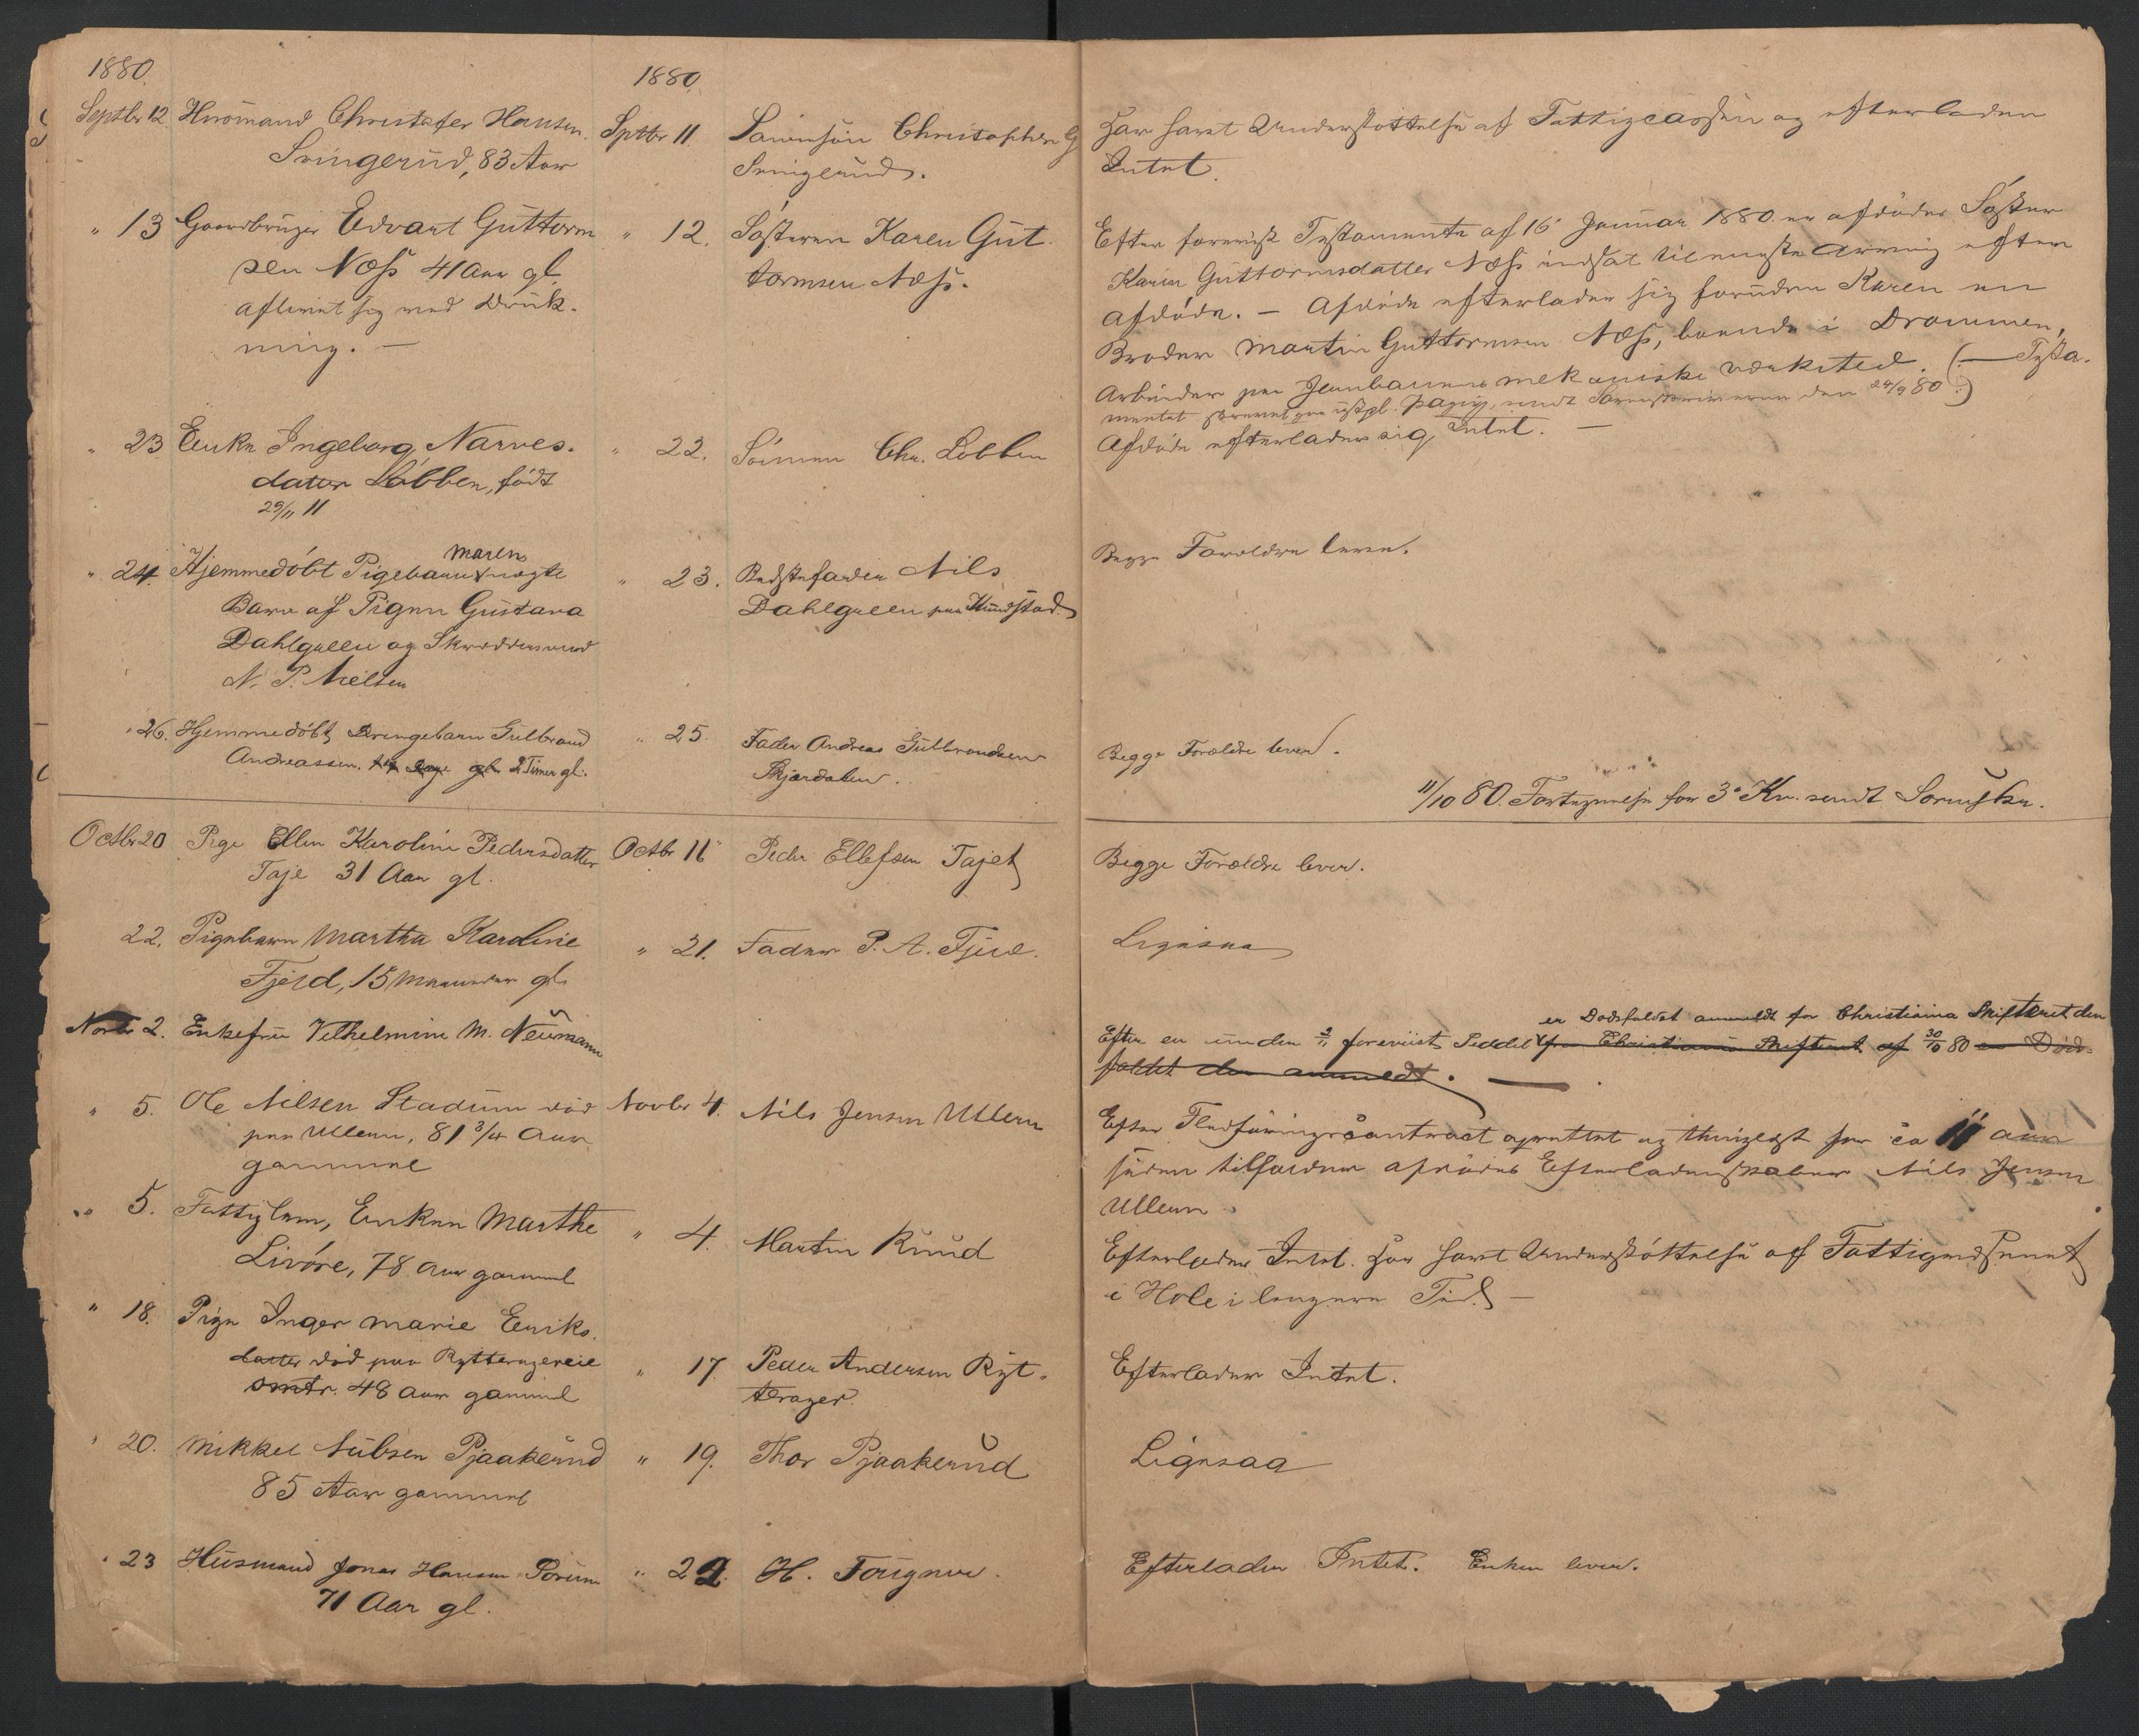 1880.
Septbr 12. Huusmand Christofer Hansen
Svingerud, 83 Aar
" 13 Gaardbruger Edvart Guttorm
sen Næss 41 Aar gl.
aflivet sig ved Druk-
ning. —
" 23 Enke Ingeborg Narves-
datter Løbben, født
29/11 11
" 24. Hjemmedøbt Pigebarn Maren uægte
Barn af Pigen Gustava
Dahlgreen og Skræddersvend
N. P. Nielsen
" 26. Hjemmedøbt Drengebarn Gulbrand
Andreassen. 2 Timer gl.
Octbr 20 Pige Ellen Karoline Pedersdatter
Taje 31 Aar gl.
22. Pigebarn Martha Karoline
Fjeld, 15 Maaneder gl.
Novbr 2. Enkefru Vilhelmine M. Neumann
" 5. Ole Nilsen Stadum død
paa Ullern, 81 3/4 Aar
gammel
" 5. Fattiglem, Enken Marthe
Livøre, 78 Aar gammel
" 18. Pige Inger Marie Eriks-
datter død paa Rytteragereie
omtr. 48 Aar gammel
" 20. Mikkel Nilsen Pjaakerud
85 Aar gammel
" 23 Husmand Jonas Hansen
71 Aar gl.
1880.
Sptbr 11. Svigersøn Christopher G
Svingerud.
" 12. Søsteren Karen Gut-
tormsen Næss.
" 22. Sønnen Chr. Løbben
" 23. Bedstefaren Nils
Dahlgreen paa
" 25. Fader Andreas Gulbrandsen
Bjørdalen.
Octbr 16 Peder Ellefsen Tajet
" 21. Fader P. A. Fjeld.
Novbr 4. Nils Jensen Ullern
" 4. Martin Ruud
" 17. Peder Andersen Ryt-
terager.
" 19. Thor Pjaakerud
" 22. H. Fougner.
Har havt Understøttelse af Fattigcassen og efterlader
Intet.
Efter forevist Testamente af 16 Januar 1880 er afdødes Søster
Karen Guttormsdatter Næss indsat til eneste Arving efter
afdøde. — Afdøde efterlader sig foruden Karen en
Broder Martin Guttormsen Næss, boende i Drammen,
Arbeider paa Jernbanens mekaniske værksted. (— Testa-
mentet skrevet paa papir, sendt Sorenskriveren den 24/9 80 :)
Afdøde efterlader sig Intet. —
Begge Forældre lever.
Begge Forældre lever.
11/10 80. Fortegnelse for 3 Kv. sendt Sorenskr.
Begge Forældre lever.
Ligesaa
er Dødsfaldet anmeldt for Christiania Skifteret den
Efter en under 2/11 forevist Seddel fra Christiania Skifteret af 30/10 80 er Døds-
faldet der anmeldt. —
Efter Flødføringscontract oprettet og thinglæst for ca 11 Aar
siden tilfalder afdødes Efterladenskaber Nils Jensen
Ullern
Efterlader Intet. Har havt Understøttelse af Fattigvæsenet
i Hole i længere Tid. —
Efterlader Intet.
Ligesaa
Efterlader Intet. Enken lever.